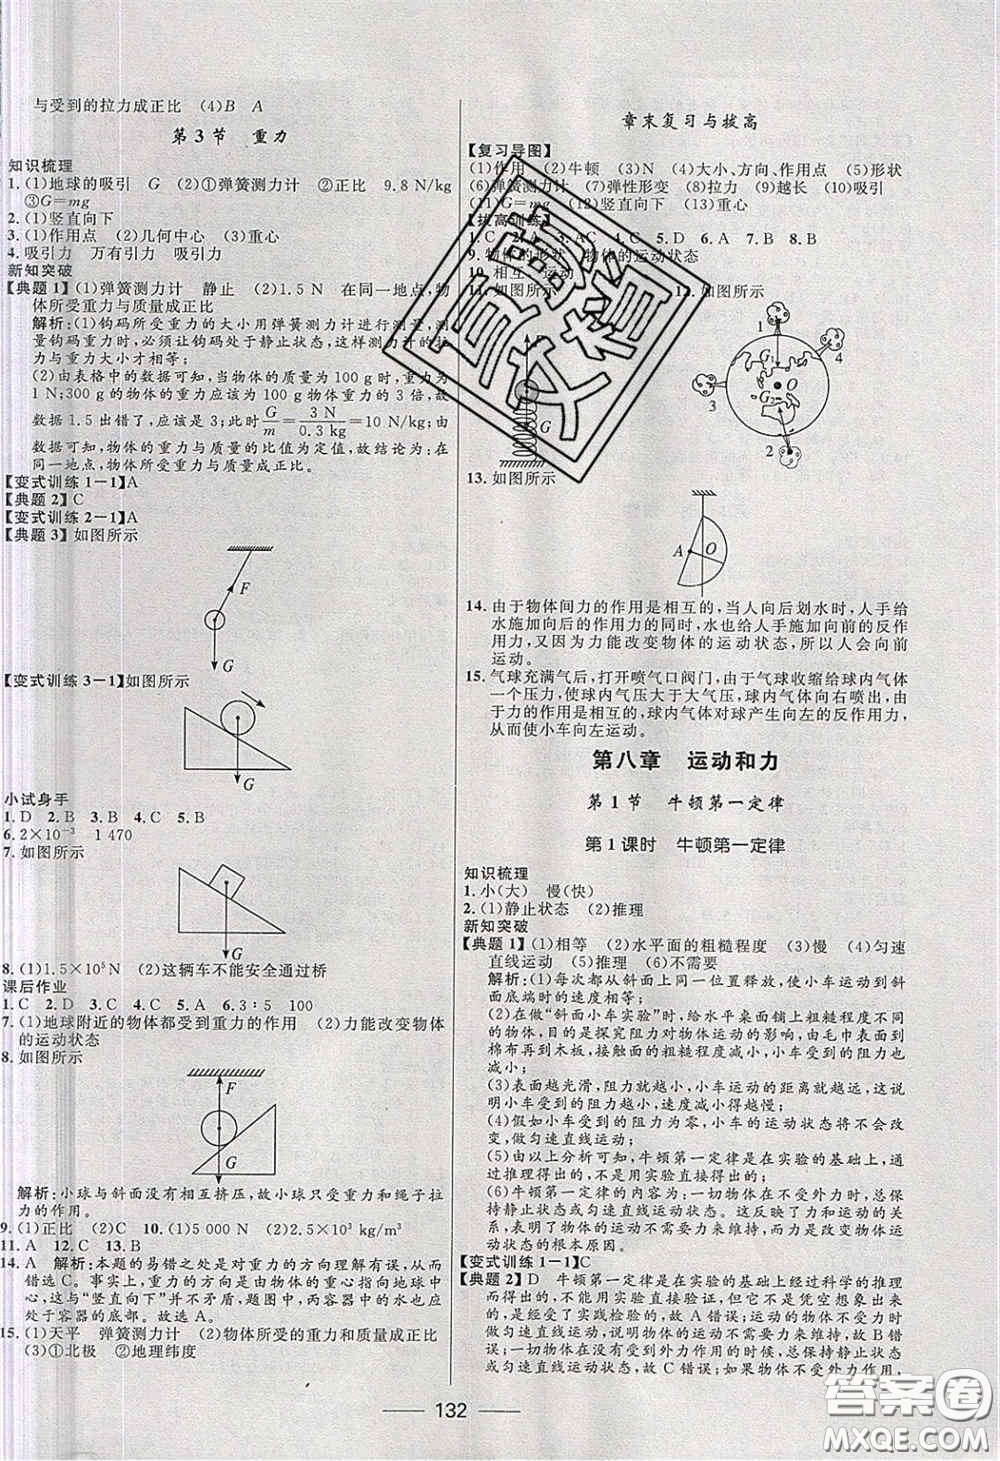 与受到的拉力成正比 (4)B A
第3节 重力
知识梳理
1. (1)地球的吸引 G (2)①弹簧测力计 ②正比 9.8 N/kg
③G=mg
2. (1)竖直向下
3. (1)作用点 (2)几何中心 (3)重心
4. 吸引力 万有引力 吸引力
新知突破
【典题1】(1)弹簧测力计 静止 (2)1.5 N 在同一地点,物
体所受重力与质量成正比
解析:(1)钩码所受重力的大小用弹簧测力计进行测量,测
量钩码重力时,必须让钩码处于静止状态,这样测力计的拉
力与重力大小才相等;
(2)由表格中的数据可知,当物体的质量为100 g时,重力为
1 N;300 g的物体的重力应该为100 g物体重力的3倍,故
数据1.5出错了,应该是3;此时G/m=3 N/0.3 kg=10 N/kg;由
以上数据可知,物体的重力与质量的比值为定值,故结论为:在
同一地点,物体所受重力与质量成正比。
【变式训练1-1】A
【典题2】C
【变式训练2-1】A
【典题3】如图所示
F
G
【变式训练3-1】如图所示
G
小试身手
1. D 2. B 3. B 4. C 5. B
6. 2×10⁻³ 1 470
7. 如图所示
G
8. (1)1.5×10⁵ N (2)这辆车不能安全通过桥
课后作业
1. C 2. D 3. B 4. C 5. A 6. 3∶5 100
7. (1)地球附近的物体都受到重力的作用 (2)力能改变物体
的运动状态
8. 如图所示
F
G
解析:小球与斜面没有相互挤压,故小球只受重力和绳子拉
力的作用。
9. (1)正比 (2)C 10. (1)5 000 N (2)2.5×10³ kg/m³
11. A 12. C 13. B
14. A 解析:本题的易错之处是对重力的方向理解有误,从而
错选C。事实上,重力的方向是由物体的重心指向地球中
心,这与“竖直向下”并不矛盾,故题图中,两容器中的水也应
处于容器的底部。故选A。
15. (1)天平 弹簧测力计 (2)物体所受的重力和质量成正比
(3)①北极 ②地理纬度
章末复习与拔高
【复习导图】
(1)作用 (2)牛顿 (3)N (4)大小、方向、作用点 (5)形状
(6)弹簧测力计 (7)弹性形变 (8)拉力 (9)越长 (10)吸引
(11)G=mg (12)竖直向下 (13)重心
【拔高训练】
1. C 2. A 3. AC 4. C 5. D 6. A 7. B 8. B
9. 物体的形状 物体的运动状态
10. 相互 运动
11. 如图所示 12. 如图所示
F
G
1
4
3
2
G₁
O
G₂
13. 如图所示
A
O
14. 由于物体间力的作用是相互的,当人向后划水时,人手给
水施加向后的作用力的同时,水也给人手施加向前的反作
用力,又因为力能改变物体的运动状态,所以人会向前
运动。
15. 气球充满气后,打开喷气口阀门,由于气球收缩给球内气体
一个压力,使球内气压大于大气压,球内气体向右喷出,由
于力的作用是相互的,球内气体对球产生向左的反作用力,
从而使小车向左运动。
第八章 运动和力
第1节 牛顿第一定律
第1课时 牛顿第一定律
知识梳理
1. 小(大) 慢(快)
2. (1)静止状态 (2)推理
新知突破
【典题1】(1)相等 (2)水平面的粗糙程度 (3)慢 (4)匀速
直线运动 (5)推理 (6)不需要
解析:(1)每次都从斜面上同一位置释放,使小车运动到斜
面底端时的速度相等;
(2)在做“斜面小车实验”时,给水平桌面铺上粗糙程度不同
的物体,目的是探究阻力对物体运动的影响,由毛巾表面到
棉布再到木板,接触面的粗糙程度减小,小车受到的阻力也
减小;
(3)表面越光滑,阻力就越小,小车运动的距离就越远,这说
明小车受到的阻力越小,速度减小得越慢;
(4)假如小车受到的阻力为零,小车的运动状态将不会改
变,做匀速直线运动;
(5)由以上分析可知,牛顿第一定律是在实验的基础上,通
过推理得出的,不是用实验直接得出的;
(6)牛顿第一定律的内容为:一切物体在不受外力时,总保
持静止状态或匀速直线运动状态。这反映了力和运动的关
系,说明了物体的运动不需要力来维持,而力是改变物体运
动状态的根本原因。
【变式训练1-1】C
【典题2】D 牛顿第一定律是在实验的基础上经过科学的推理
而得出的,不能用实验直接验证,但它不是凭空想象出来
的,是经受了实践检验的,故A错误;一切物体不受力时,总保持静止状态
或匀速直线运动状态,故C错误;如果物体不受外力作用,
132
答案圈
MXQE.COM